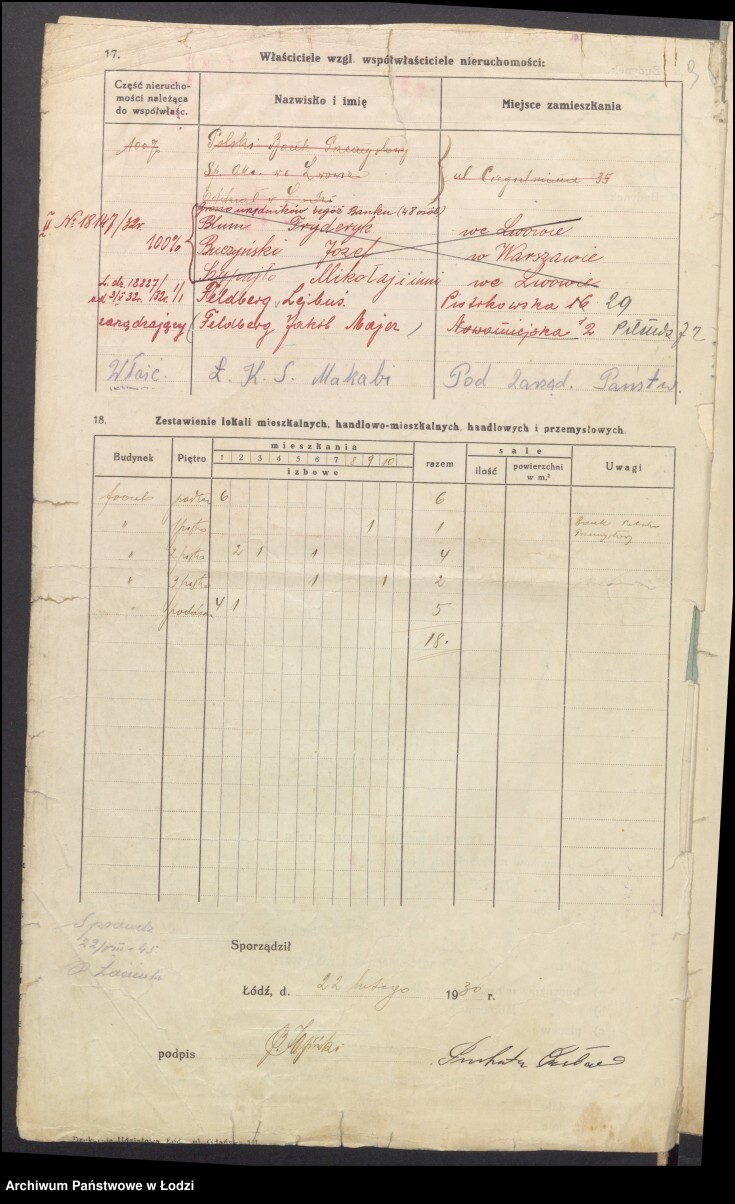 17.
Właściciele wzgl. współwłaściciele nieruchomości:
Część nierucho-
mości należąca
do współwłaśc.
Nazwisko i imię
Miejsce zamieszkania
100%
Polski Bank Przemysłowy
Sp. Akc. we Lwowie
ul. 35
Grono urzędników tegoż Banku (48 osób)
II № 18147/32r.
100%
Blum Fryderyk
we Lwowie
Buczyński Józef
w Warszawie
Mikołaj i inni
we Lwowie
L. dz. 18827/
/32r. 1/1
Feldberg Lejbuś
Piotrkowska 16 29
zarządzający (Feldberg Jakób Majer)
Nowomiejska 2
72
Właśc.
Ł. K. S. Makabi
Pod Zarząd. Państw.
18.
Zestawienie lokali mieszkalnych, handlowo-mieszkalnych, handlowych i przemysłowych
Budynek
Piętro
mieszkania
1 2 3 4 5 6 7 8 9 10
izbowe
razem
sale
ilość
powierzchni
w m.²
Uwagi
front parter 6 6
" 1 piętro 1 1
" 2 piętro 2 1 1 4
" 3 piętro 1 1 2
" poddasze 4 1 5
18.
22/VIII-45
Sporządził
Łódź, d. 22 lutego 1930 r.
podpis
Archiwum Państwowe w Łodzi